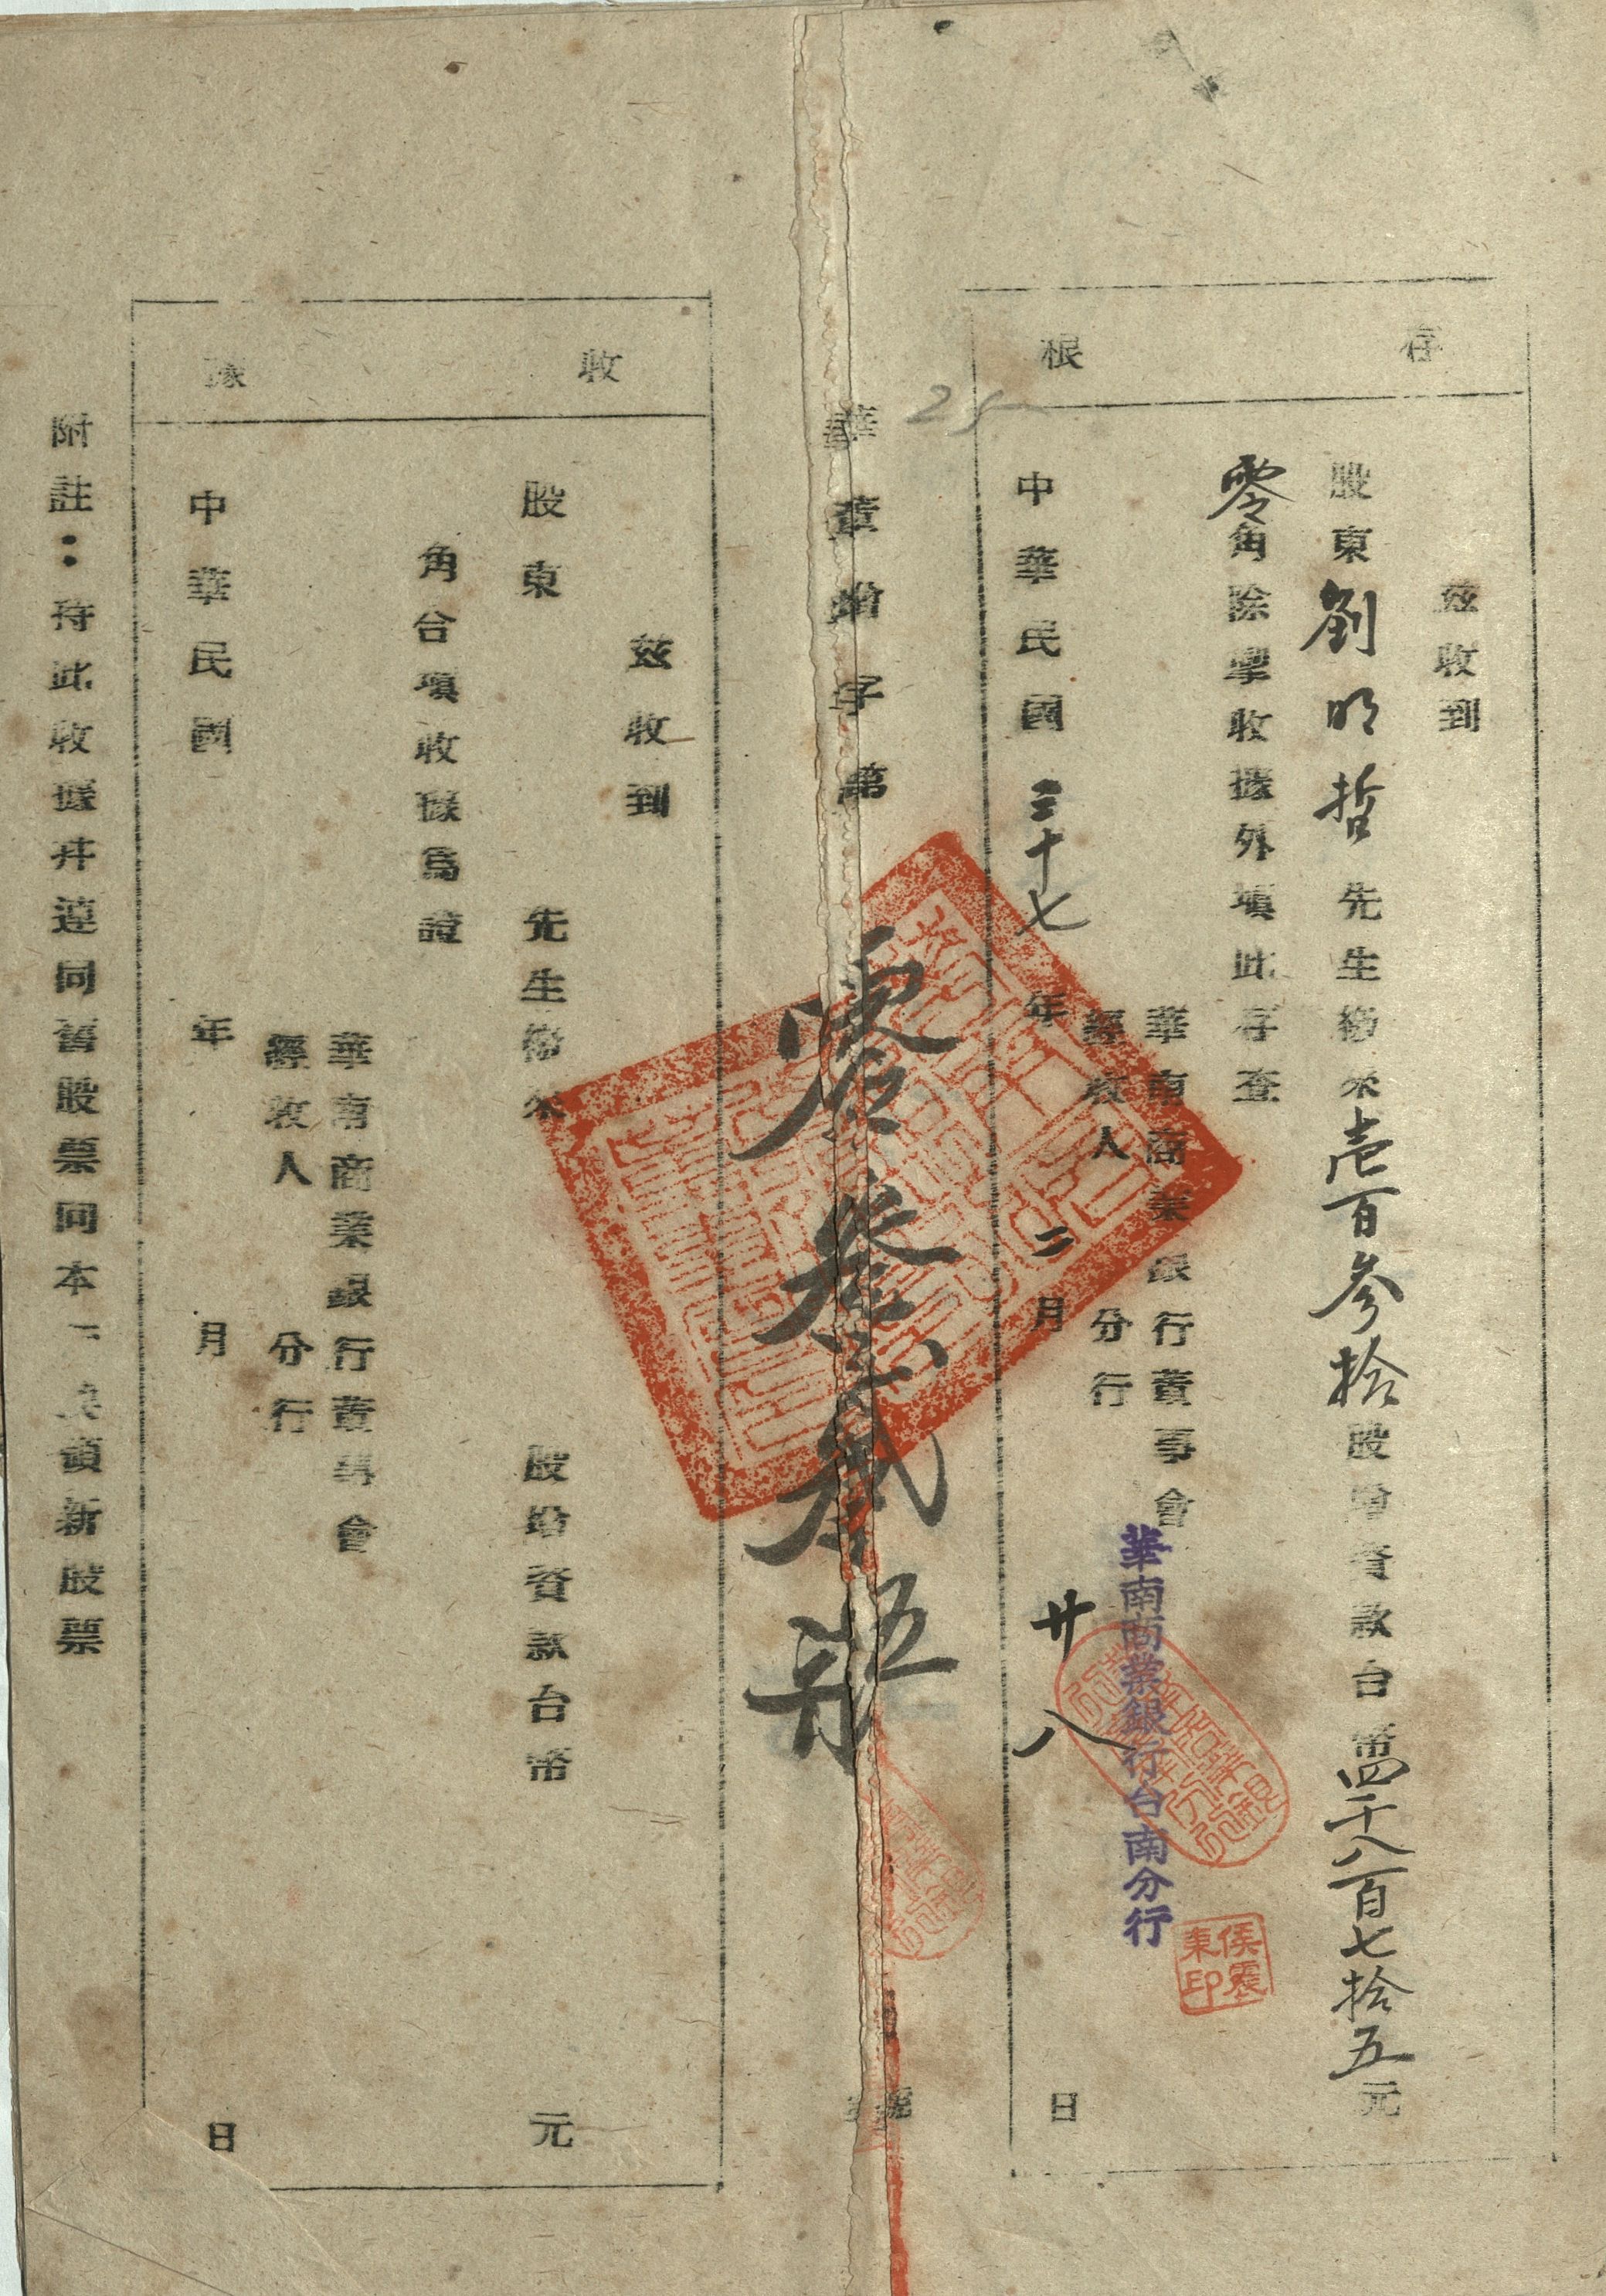 存根
茲收到
股東劉明哲先生繳來壹百參拾股增資款台幣四千八百七拾五元
零角除掣收據外塡此存查
華南商業銀行董事會
經收人 分行
華南商業銀行台南分行
中華民國三十七年二月廿八日
25
華董增字第 號
收據
茲收到
股東 先生繳來 股增資款台幣 元
角合塡收據爲證
華南商業銀行董事會
經收人 分行
中華民國 年 月 日
附註：持此收據幷連同舊股票向本 換領新股票